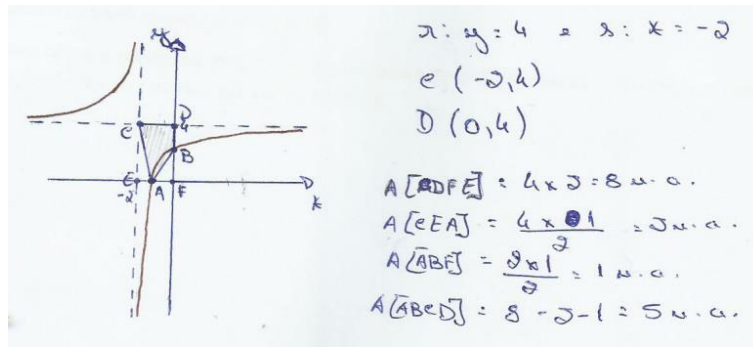 y
D
C
4
B
E
A
F
-2
x
r: y = 4 e s: x = -2
C (-2,4)
D (0,4)
A[CDFE] = 4 x 2 = 8 u. a.
A[CEA] = 4 x 1 / 2 = 2 u. a.
A[ABF] = 2 x 1 / 2 = 1 u. a.
A[ABCD] = 8 - 2 - 1 = 5 u. a.